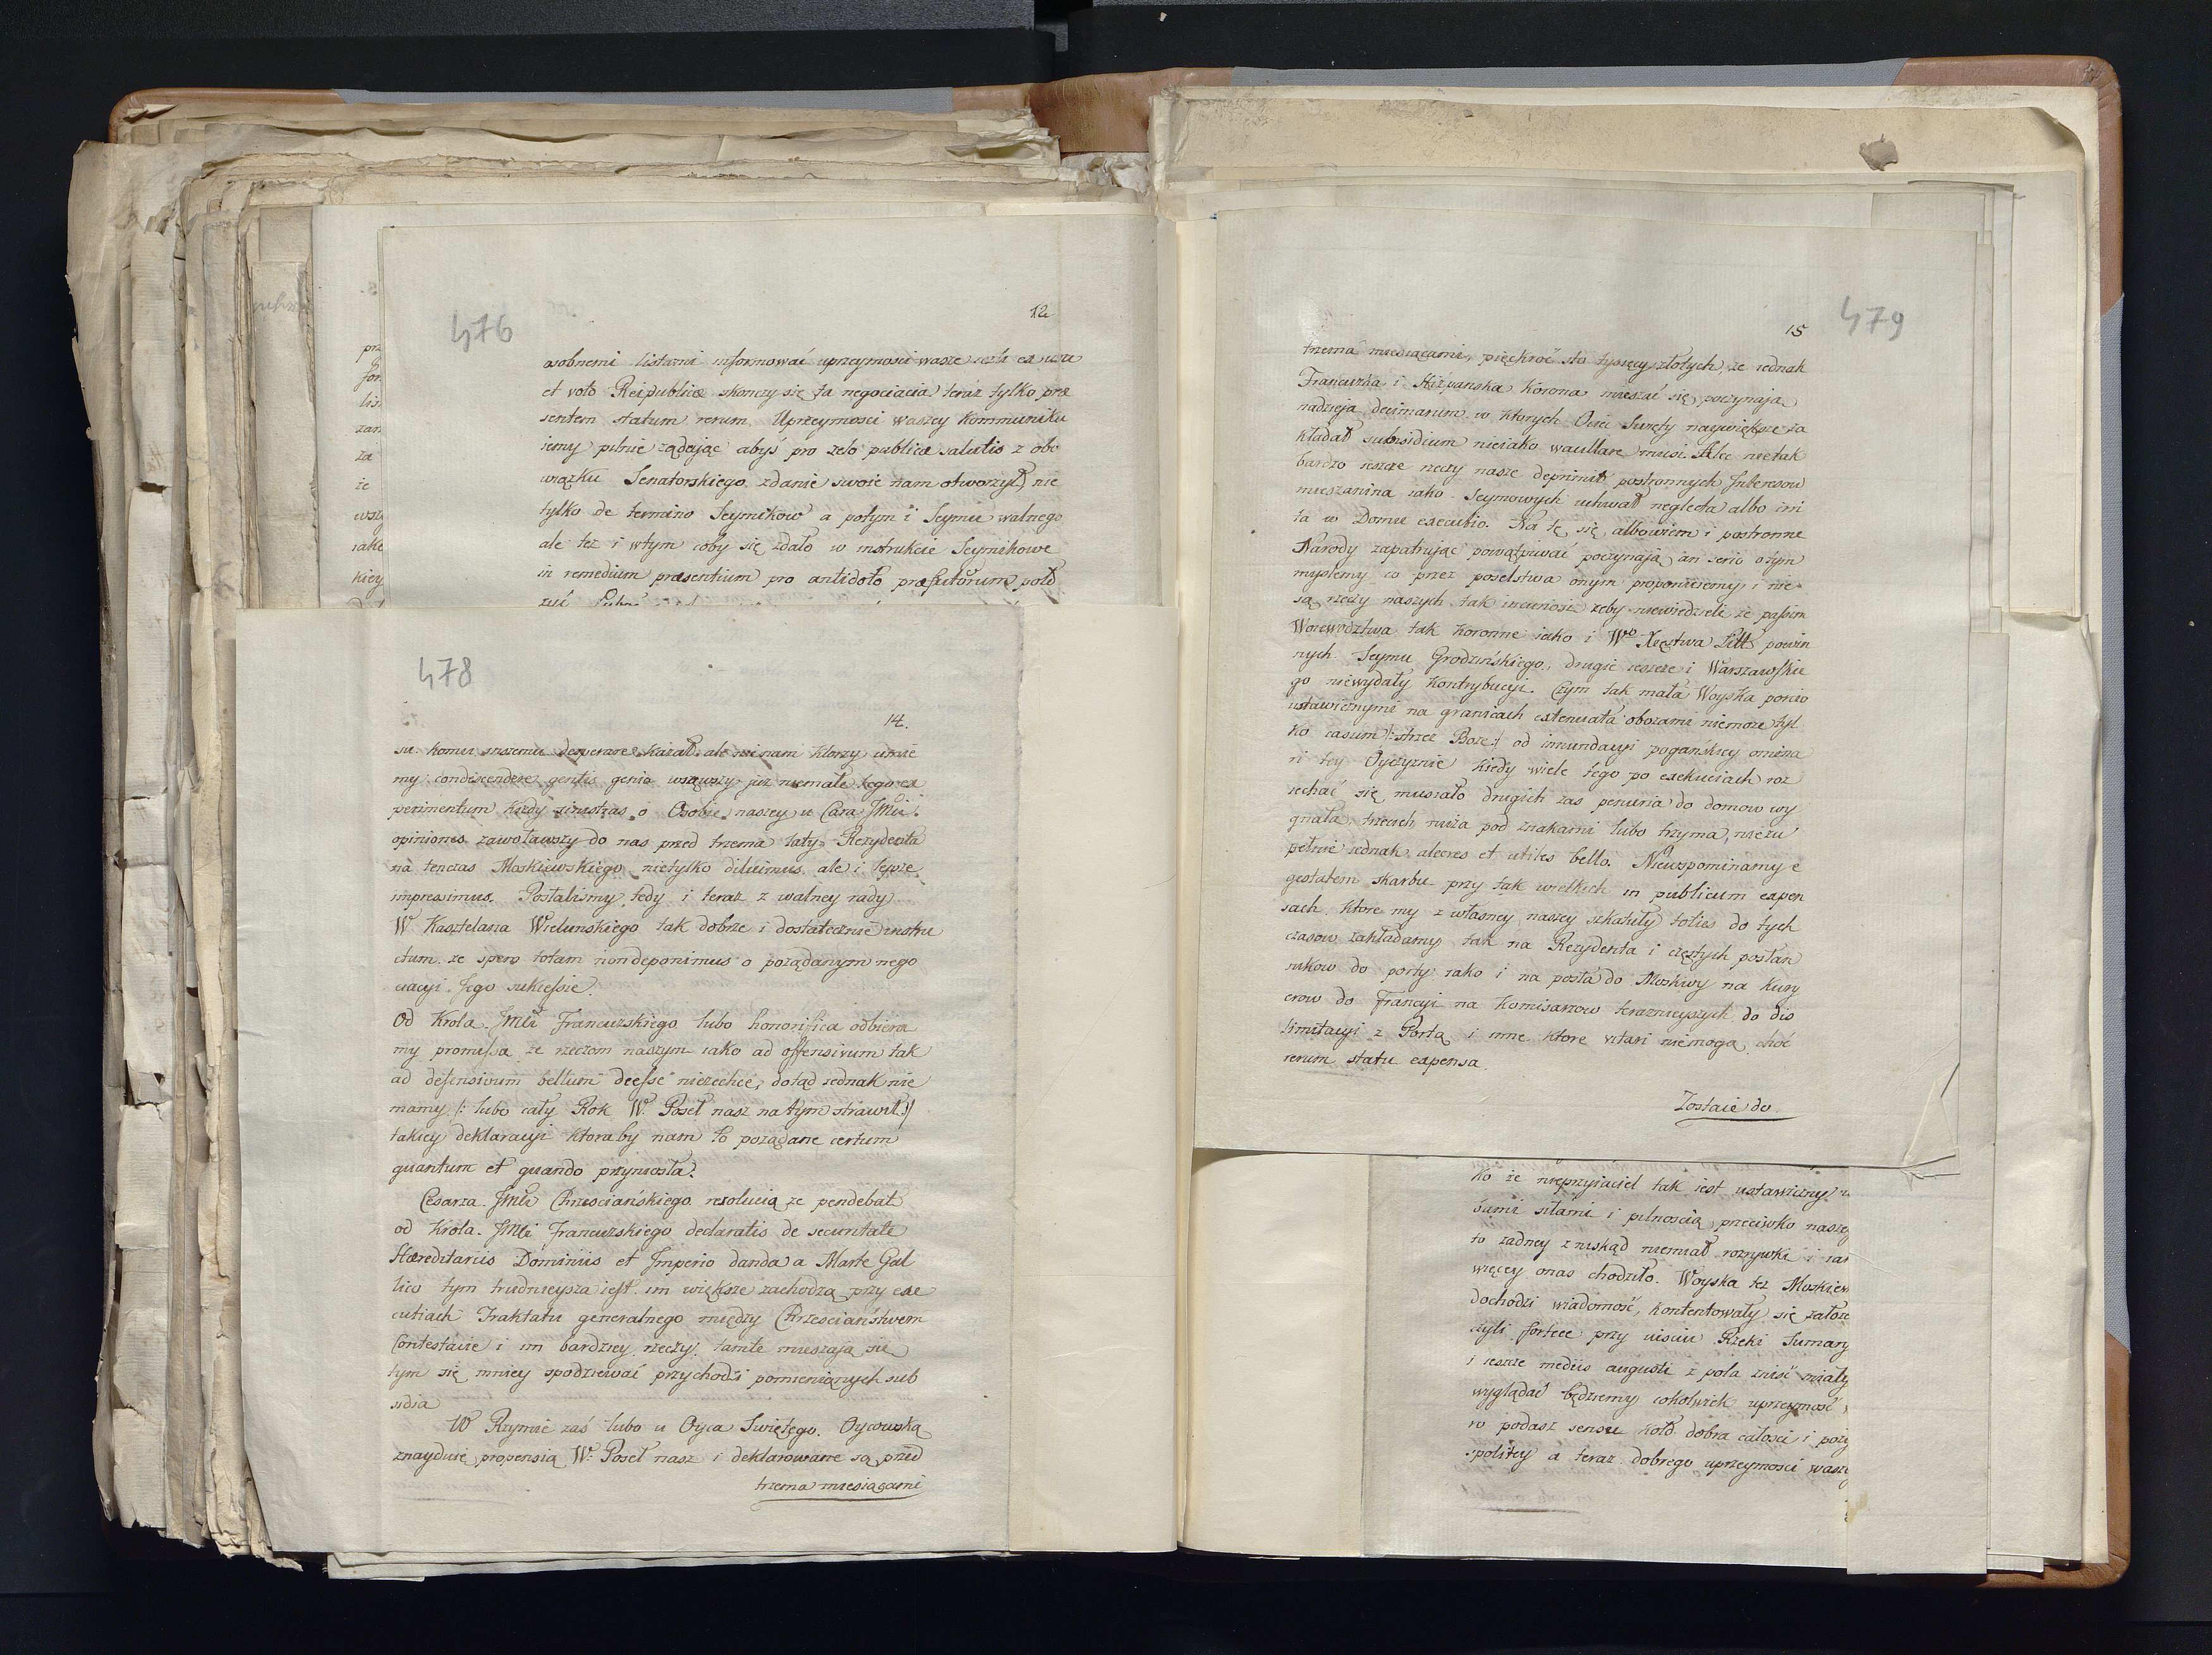 476
12
osobnemi listami informować uprzeymosci wasze iesli ex usu
et voto Reipublicæ skonczy się ta negociacia teraz tylko præ
sentem statum rerum Uprzeymosci waszey Kommuniku
iemy pilnie ządając abyś pro zelo publicæ salutis z obo
wiązku Senatorskiego zdanie swoie nam otworzył nie
tylko de termino Seymikow a potym i Seymu walnego
ale też i wtym coby się zdało w instrukcie Seymikowe
in remedium præsentium pro antidoto præfuturum poło
prz
for
lis
zan
za
że
iako
kiey
478
14.
su komu inszemu desperare kazał ale nie nam ktorzy umie
my condescendere gentis genio wziąwszy już niemałe tego ex
perimentum kiedy sinistras o Osobie naszey u Cara JMci
opiniones zawoławszy do nas przed trzema laty Rezydenta
na tenczas Moskiewskiego nietylko diluimus ale i lepsze
impressimus. Posłalismy tedy i teraz z walney rady
W Kasztelana Wielunskiego tak dobrze i dostatecznie instru
ctum ze spem totam non deponimus o poządanym nego
ciacyi Jego sukcessie.
Od Krola JMci Francuzskiego lubo honorifica odbiera
my promissa ze rzeczom naszym iako ad offensivum tak
ad defensivum bellum deesse niezechce, dotąd iednak nie
mamy /: lubo cały Rok W. Poseł nasz na tym strawił :/
takiey deklaracyi ktoraby nam to poządane certum
quantum et quando przyniosła.
Cesarza JMci Chrzesciańskiego rezolucia ze pendebat
od Krola JMci Francuzskiego declaratis de securitate
Hæreditariis Dominiis et Imperio danda a Marte Gal
lico tym trudnieysza iest im większe zachodzą przy exe
cutiach Traktatu generalnego między Chrzesciaństwem
Contestacie i im bardziey rzeczy tamte mieszają się
tym się mniey spodziewać przychodzi pomienionych sub
sidia
W Rzymie zaś lubo u Oyca Swiętego Oycowską
znayduie propensią W. Poseł nasz i deklarowane są przed
trzema miesiącami
479
15
trzema miesiącami, pięćkroć sto tysięcy złotych, ze iednak
Francuzka i Hiszpanska Korona mieszać się poczynają
nadzieja decimarum w ktorych Ociec Swięty naywiększe za
kładał subsidium nieiako vacillare musi. Alec nie tak
bardzo ieszcze rzeczy nasze deprimit postronnych Interesow
mieszanina iako Seymowych uchwał neglecta albo irri
ta w Domu executio. Na tę się albowiem i postronne
Narody zapatrując powątpiwać poczynają an serio o tym
myslemy co przez poselstwa onym proponuiemy i nie
są rzeczy naszych tak incuriosi zeby niewiedzieli że passim
Woiewodztwa tak Koronne iako i Wo Xięstwa Litt powin
nych Seymu Grodzińskiego, drugie ieszcze i Warszawskie
go niewydały Kontrybucyi. Czym tak mała Woyska porcio
ustawicznymi na granicach extenuata obozami niemoze tyl
ko casum /: strzeż Boże :/ od inundacyi pogańskiey omina
ri tey Oyczyznie kiedy wiele tego po exekuciach roz
iechać się musiało drugich zas penuria do domow wy
gnała, trzecich nuża pod znakami lubo trzyma, niezu
pełnie iednak alacres et utiles bello. Niewspominamy e
gestatem skarbu przy tak wielkich in publicum expen
sach ktore my z własney naszey szkatuły toties do tych
czasow zakładamy tak na Rezydenta i częstych posłan
nikow do porty iako i na posła do Moskwy na Kury
erow do Francyi na Komisarzow teraznieyszych do dis
limitacyi z Portą i inne ktore vitari niemogą choć
rerum statu expensa.
Zostaie do
ko że nieprzyiaciel tak iest ustawiczny
szimi siłami i pilnoscią przeciwko naszey
to zadney zniskąd niemiał rozrywki i
więcey onas chodziło. Woyska też Moskiew
dochodzi wiadomość, kontentowały się założe
czyli fortece przy uisciu Rzeki Sumary
i ieszcze mediis augusti z pola znisć miały
wyglądać będziemy cokolwiek uprzeymość
ro podasz sensu koło dobra całosci i poży
spolitey a teraz dobrego uprzeymosci wasze